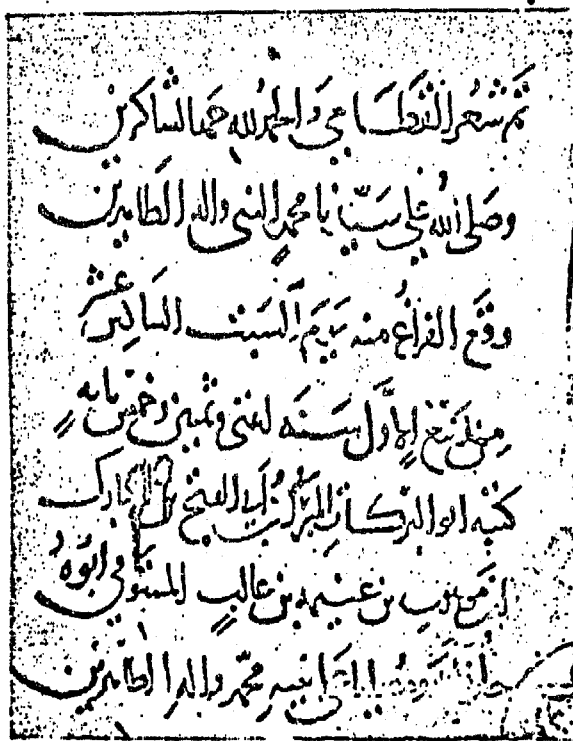 تم شعر القطامي والحمد لله حمد الشاكرين
وصلى الله على سيدنا محمد النبي واله الطاهرين
وقع الفراغ منه يوم السبت الثالث عشر
من ربيع الاول سنة اثنى وثمنين وخمس مايه
كتبه ابو البركات المبارك بن ابى الفتح بن المبارك
ابن موهوب بن غنيمه بن غالب المستوفي ابوه
الى نبيه محمد واله الطاهرين